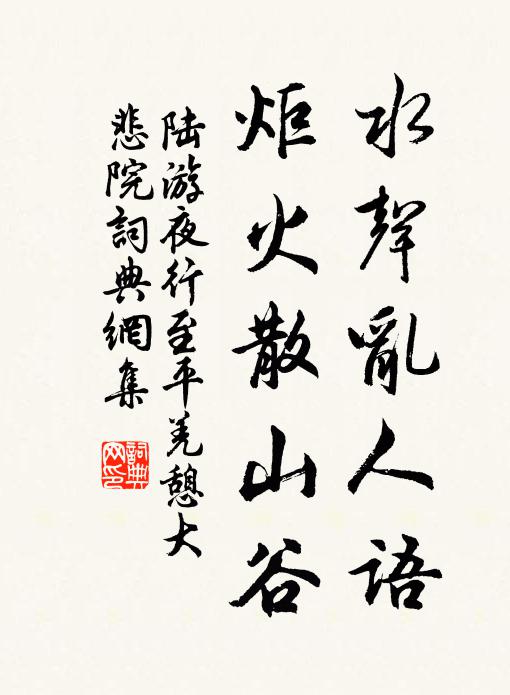 水聲亂人語
炬火散山谷
陆游夜行至平羌憩大
悲院詞典網集
詞典網印